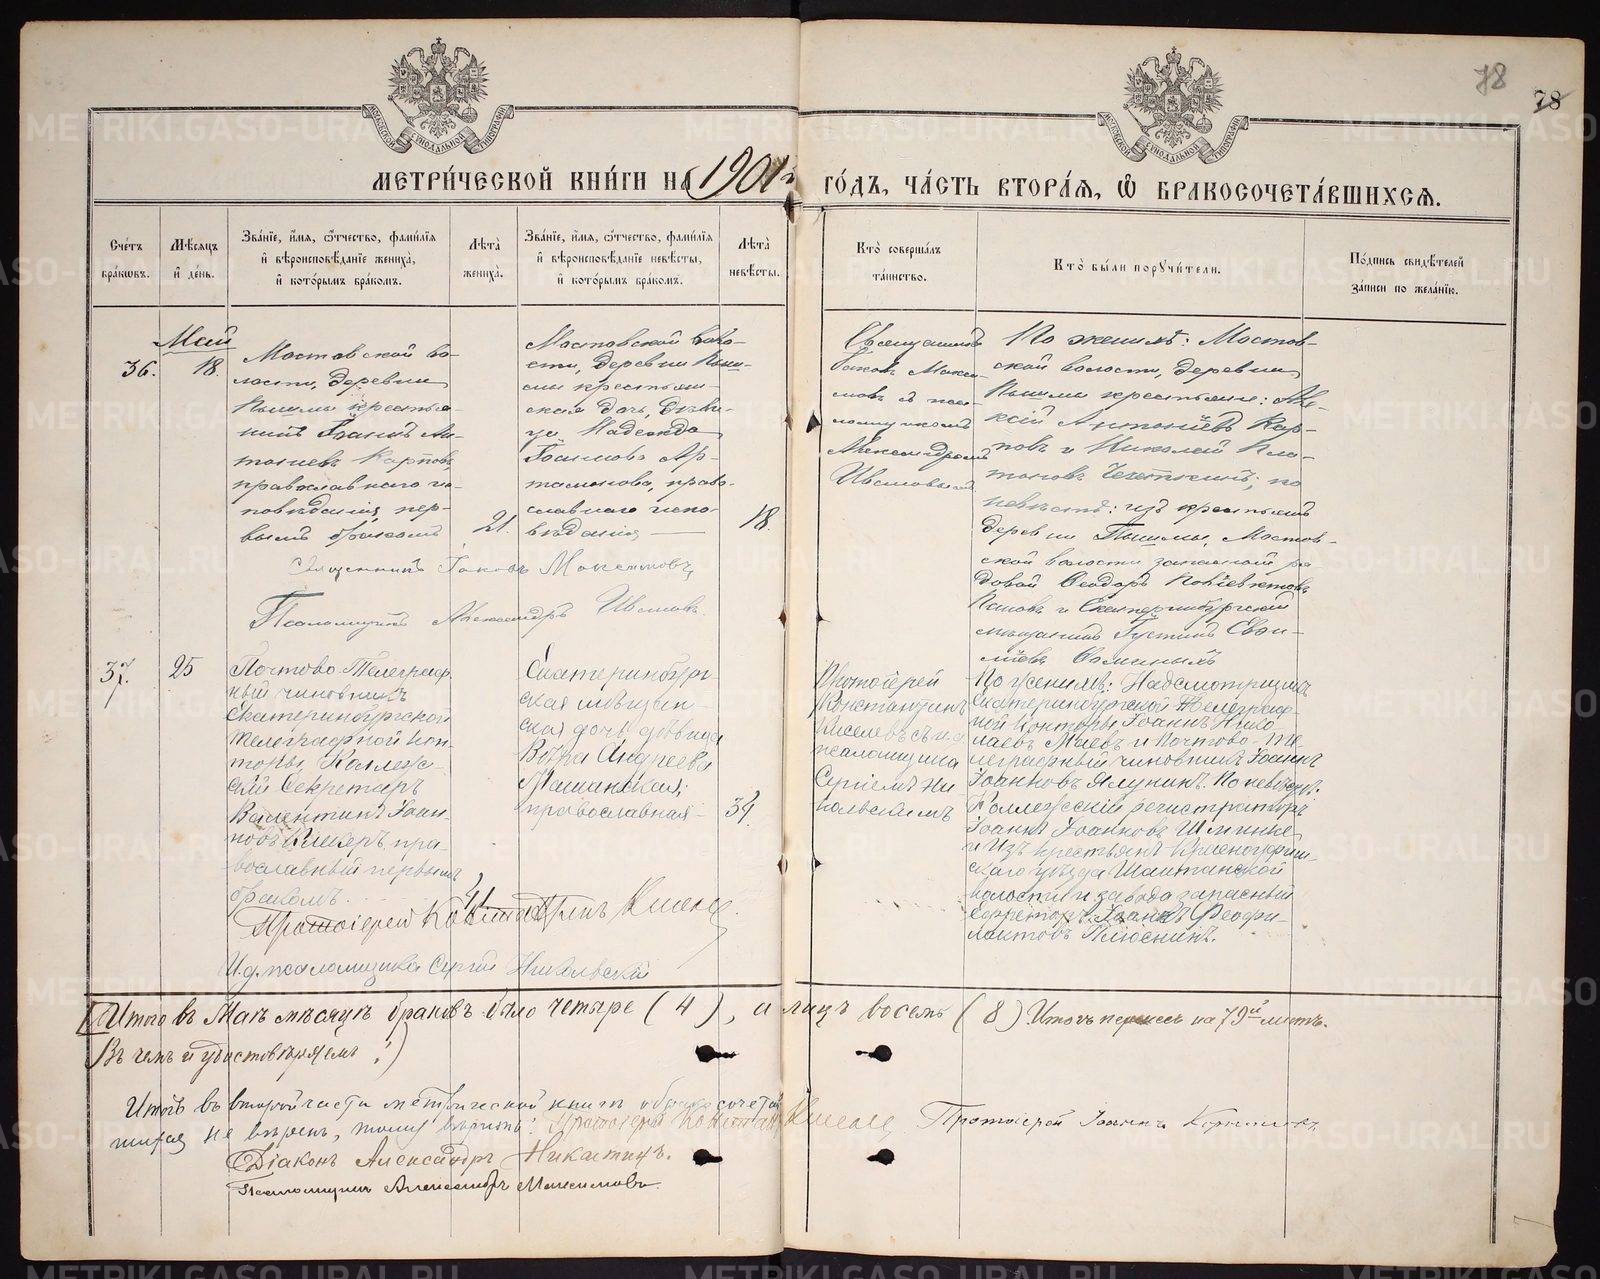 78
78
МЕТРИ́ЧЕСКОЙ КНИ́ГИ НА 1901й ГО́ДЪ, ЧА́СТЬ ВТОРА́Я, Ѽ БРАКОСОЧЕТА́ВШИХСЯ.
Сче́тъ бра́ковъ.
Мѣ́сяцъ и҆ де́нь.
Зва́нїе, и҆́мя, ѻ҆́тчество, фами́лїя и҆ вѣроисповѣ́данїе жениха̀, и҆ кото́рымъ бра́комъ.
Лѣта̀ жениха̀.
Зва́нїе, и҆́мя, ѻ҆́тчество, фами́лїя и҆ вѣроисповѣ́данїе невѣ́сты, и҆ кото́рымъ бра́комъ.
Лѣта̀ невѣ́сты.
Кто̀ соверша́лъ та́инство.
Кто̀ бы́ли поручи́тели.
По́дпись свидѣ́телей за́писи по жела́нїю.
Май
36.
18.
Мостовской во-
лости, деревни
Пышмы крестья-
нинъ Іоаннъ Ан-
тоніевъ Карповъ
православнаго ис-
повѣданія, пер-
вымъ бракомъ
21.
Мостовской воло-
сти, деревни Пыш-
мы крестьян-
ская дочь, дѣви-
ца Надежда
Іоаннова Ар-
тамонова, право-
славнаго испо-
вѣданія
18.
Священникъ
Іаковъ Макси-
мовъ съ пса-
ломщикомъ
Александромъ
Ивановымъ
По женихѣ: Мостов-
ской волости, деревни
Пышмы крестьяне: Але-
ксій Антоніевъ Кар-
повъ и Николай Пла-
тоновъ; по
невѣстѣ: изъ крестьянъ
деревни Пышмы, Мостов-
ской волости запасной ря-
довой Ѳеодоръ
Поповъ и Екатеринбургскій
мѣщанинъ Іустинъ Евѳи-
міевъ Ѳоминыхъ
Священникъ Іаковъ Максимовъ
Псаломщикъ Александръ Ивановъ.
37.
25
Почтово-Телеграф-
ный чиновникъ
Екатеринбургской
телеграфной кон-
торы, Коллеж-
скій Секретарь
Валентинъ Іоан-
новъ, пра-
вославный первымъ
бракомъ.
41
Екатеринбург-
ская мѣщан-
ская дочь дѣвица
Вѣра Андреева
православная
34.
Протоіерей
Константинъ
Киселевъ съ и.д.
псаломщика
Сергіемъ Ни-
кольскимъ
По женихѣ: Надсмотрщикъ
Екатеринбургской Телеграф-
ной Конторы Іоаннъ Нико-
лаевъ Маевъ и Почтово-Те-
леграфный чиновникъ Іоаннъ
Іоанновъ Ялунинъ. По невѣстѣ:
Коллежскій регистраторъ
Іоаннъ Іоанновъ
и Изъ крестьянъ Красноуфим-
скаго уѣзда Шайтанской
волости и завода запасный
ефрейторъ Іоаннъ Ѳеофи-
лактовъ Плюснинъ.
Протоіерей Константинъ Киселев
И.д. псаломщика Сергій Никольскій
Итого въ Маѣ мѣсяцѣ браковъ было четыре (4), а лицъ восемь (8) Итогъ на 79й листъ.
Въ чемъ и удостовѣряемъ:
Итогъ въ второй части метрической книги о бракосочетав-
шихся не вѣренъ, тому вѣрить: Протоіерей Константинъ Киселев Протоіерей Іоаннъ
Діаконъ Александръ Никитинъ.
Псаломщикъ Александръ Максимовъ.
METRIKI.GASO-URAL.RU